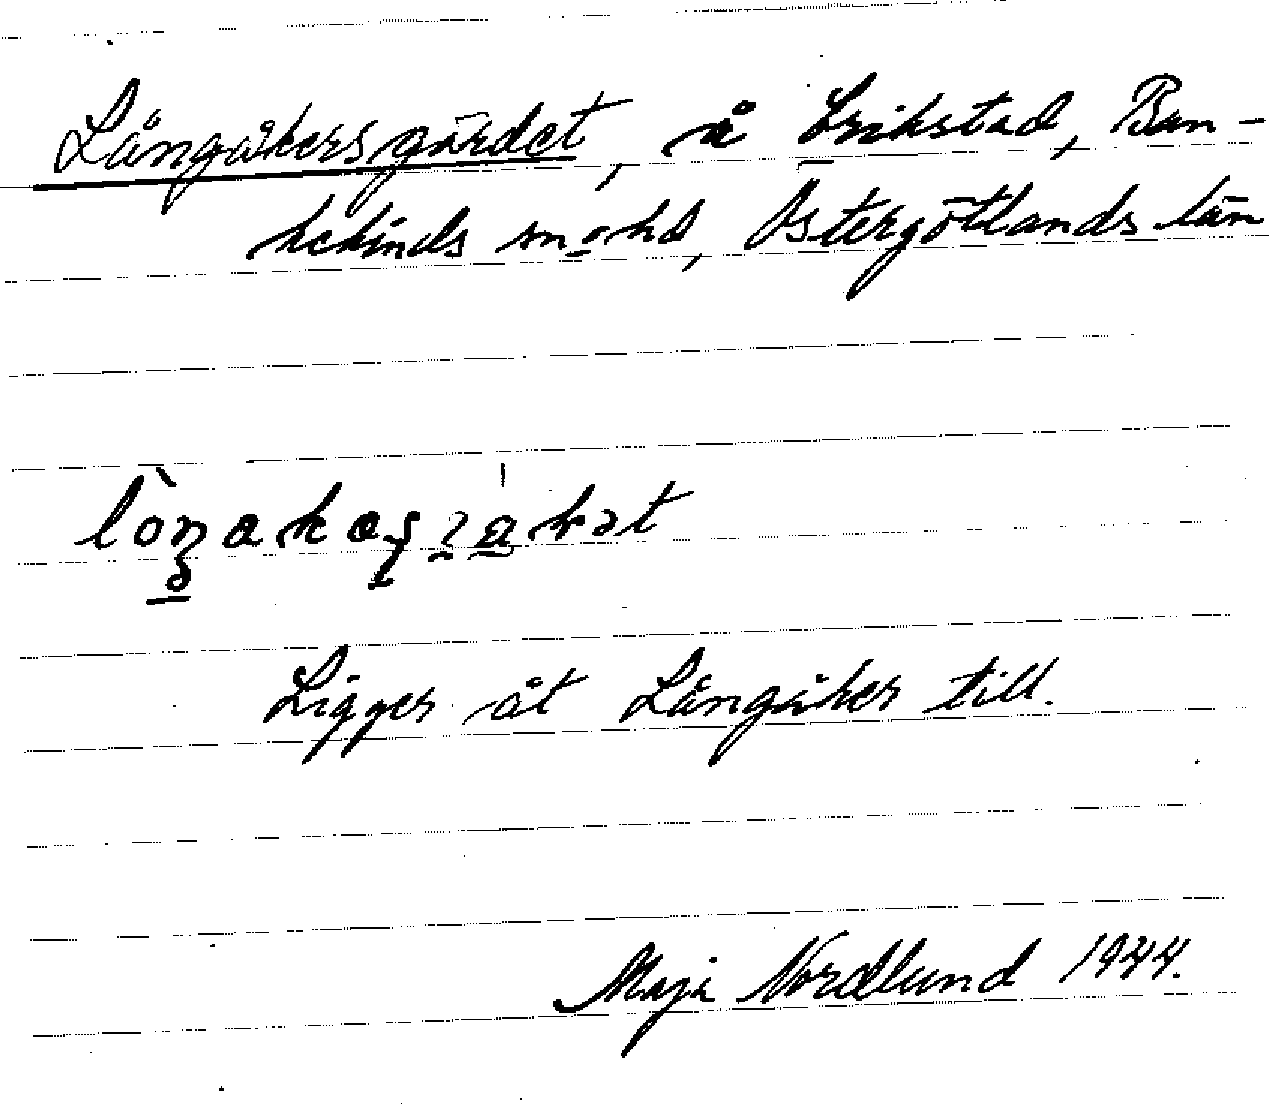 Långåkersgärdet, å Erikstad, Ban-
kekinds sn o hd, Östergötlands län
Ligger åt Långåker till.
Maja Nordlund 1944.